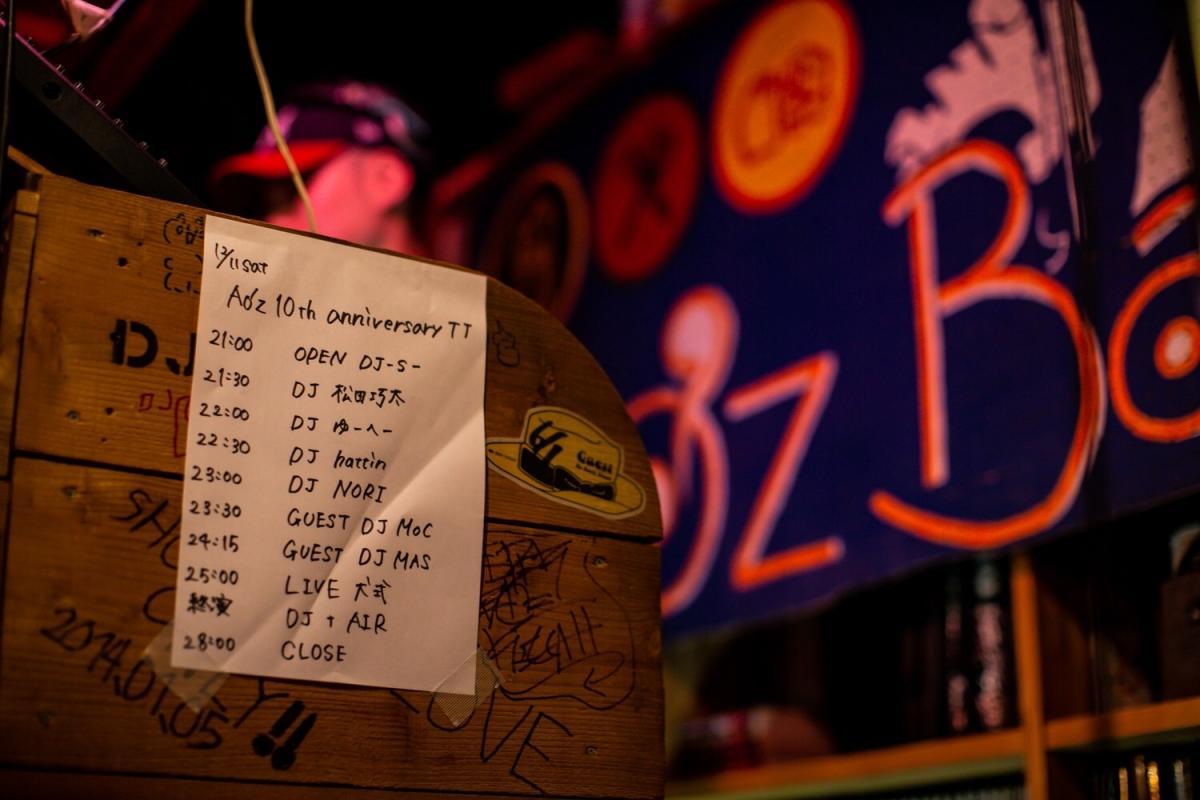 12/11 sat
Ad'z 10th anniversary TT
21:00 OPEN DJ-S-
21:30 DJ 松田巧太
22:00 DJ ゆーへー
22:30 DJ hattin
23:00 DJ NORI
23:30 GUEST DJ MOC
24:15 GUEST DJ MAS
25:00 LIVE 犬式
終演 DJ + AIR
28:00 CLOSE
DJ
Guest
2014.01.05
LOVE
'z Ba